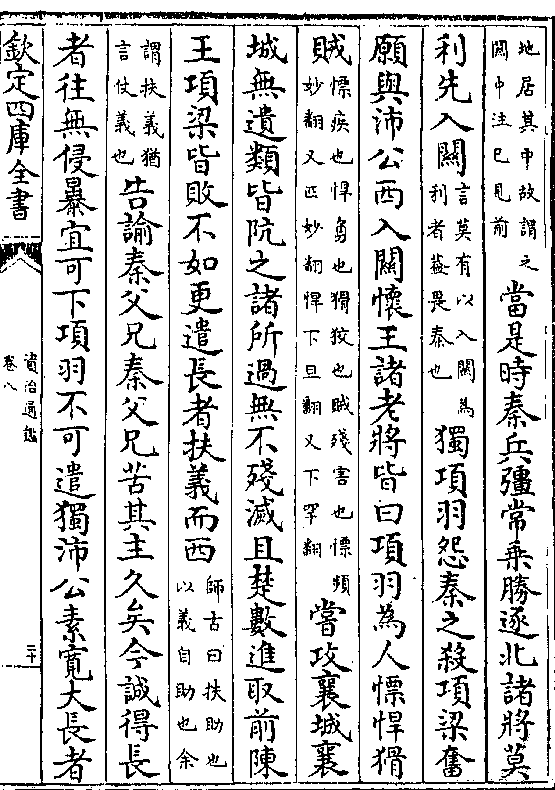 地居其中故謂之
關中注已見前
當是時秦兵彊常乗勝逐北諸將莫
利先入關
言莫有以入關為
利者蓋畏秦也
獨項羽怨秦之殺項梁奮
願與沛公西入關懷王諸老將皆曰項羽為人慓悍猾
賊
慓疾也悍勇也猾狡也賊殘害也慓頻
妙翻又匹妙翻悍下旦翻又下罕翻
嘗攻襄城襄
城無遺類皆阬之諸所過無不殘滅且楚數進取前陳
王項梁皆敗不如更遣長者扶義而西
師古曰扶助也
以義自助也余
謂扶義猶
言仗義也
告諭秦父兄秦父兄苦其主久矣今誠得長
者往無侵暴宜可下項羽不可遣獨沛公素寛大長者
欽定四庫全書
資治通鑑
卷八